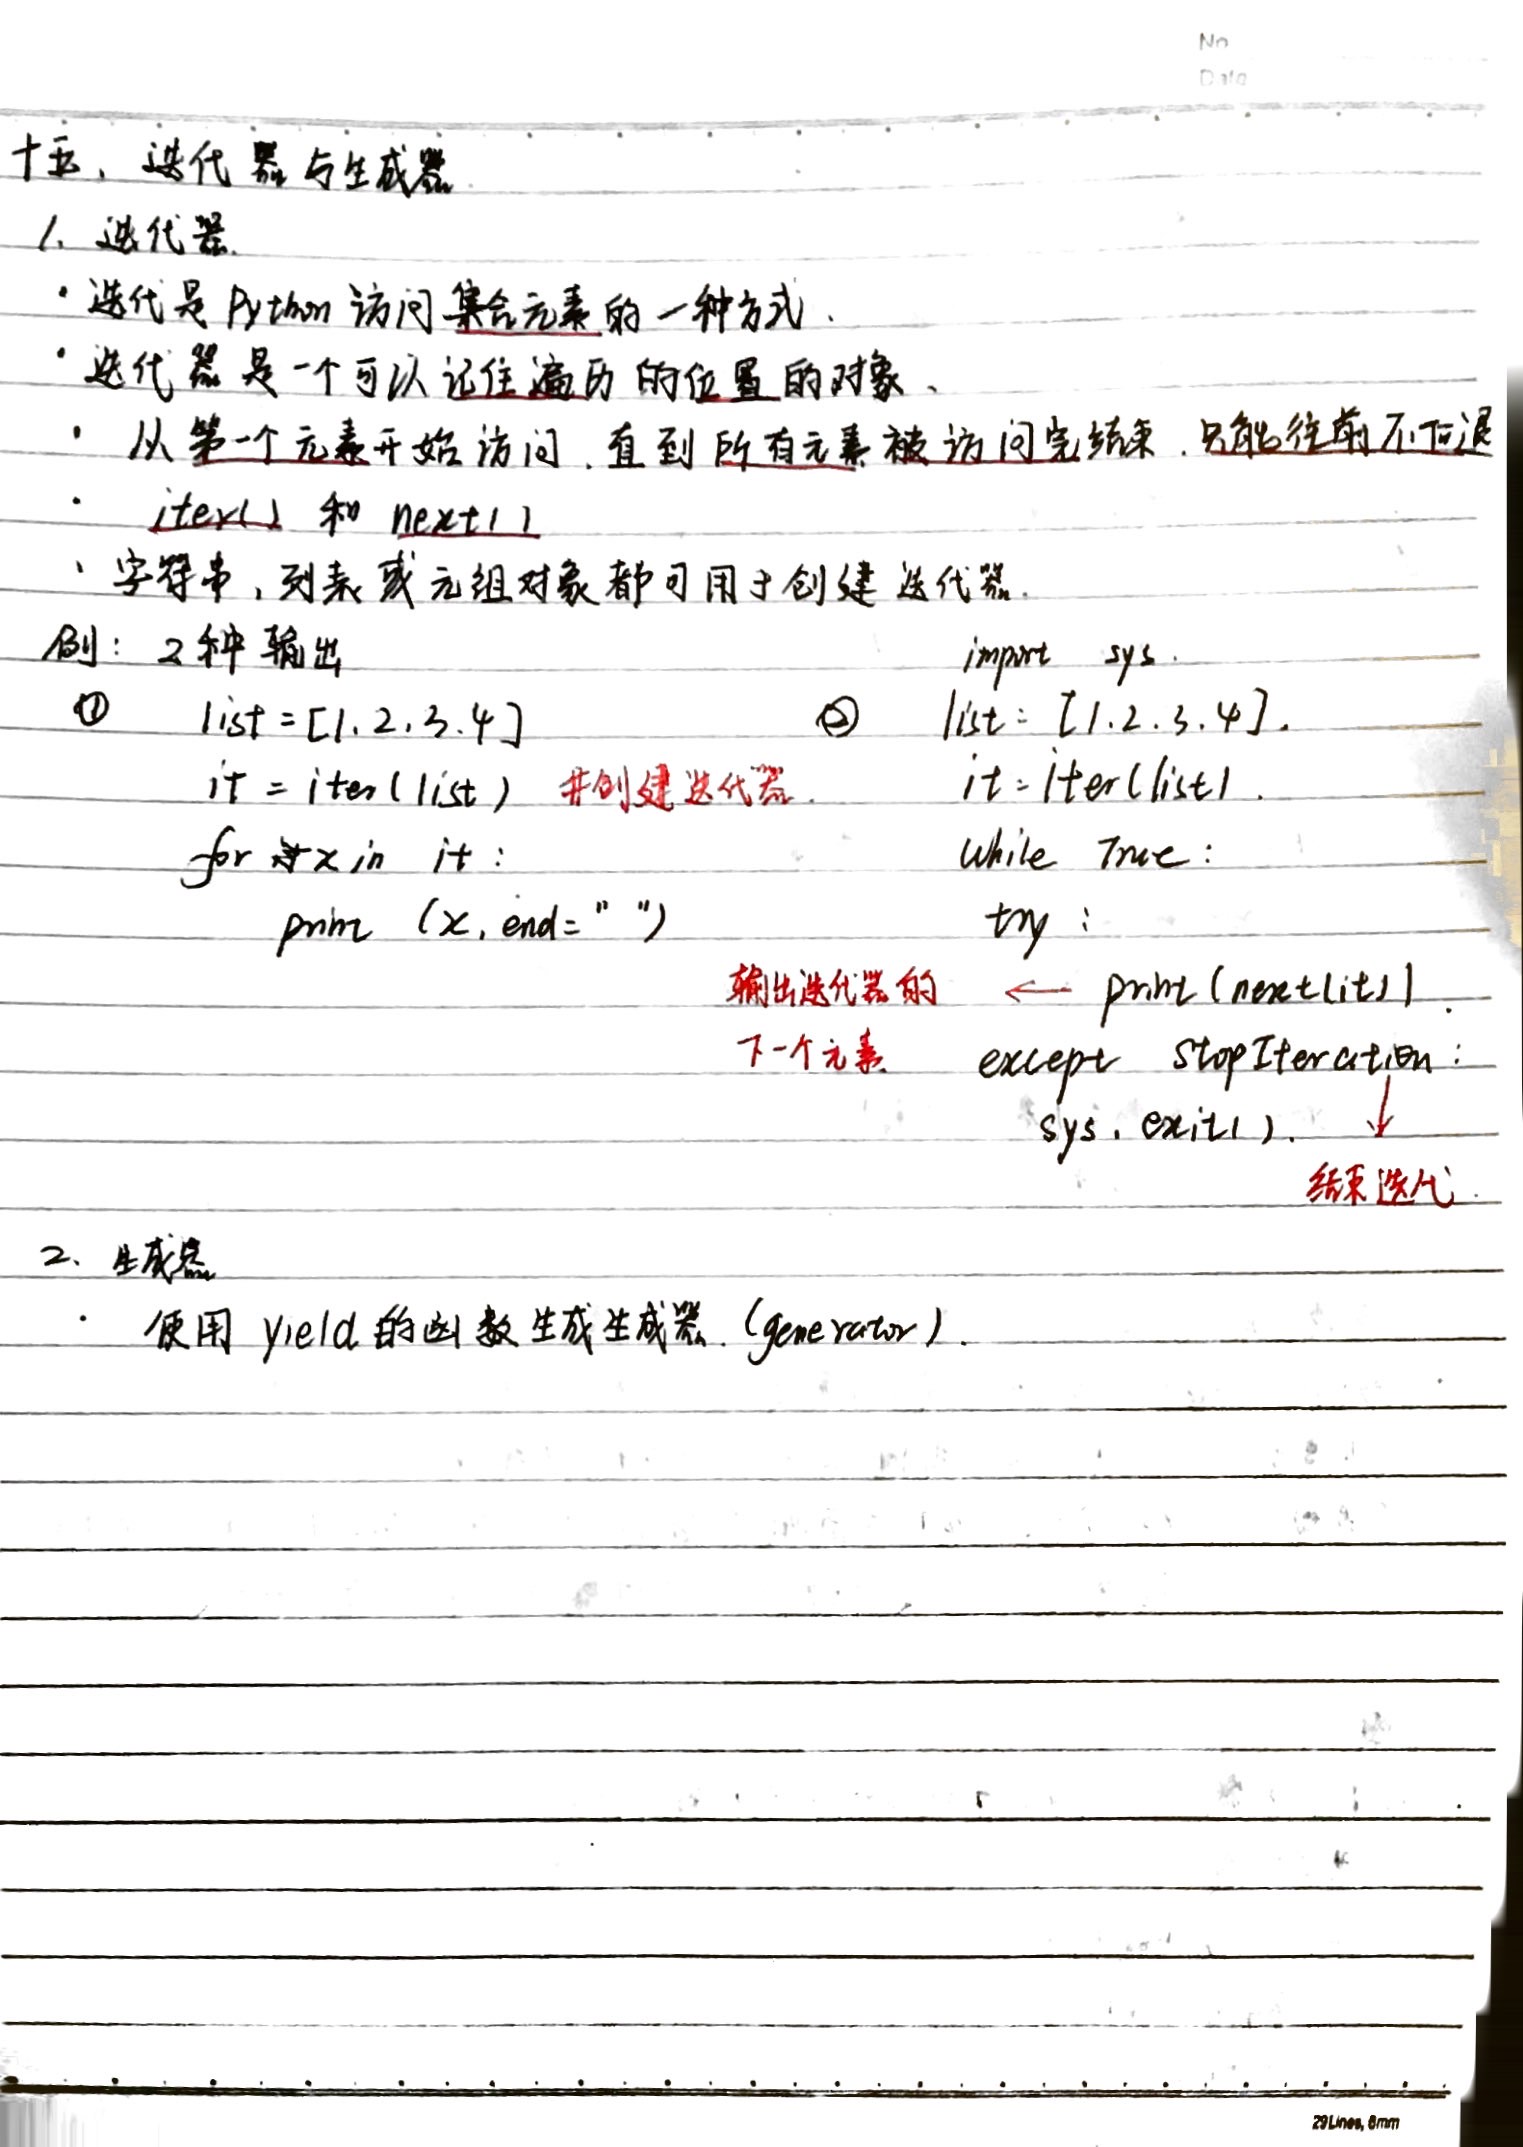 No
Date
十五、迭代器与生成器
1. 迭代器.
· 迭代是 Python 访问集合元素的一种方式.
· 迭代器是一个可以记住遍历的位置的对象、
· 从第一个元素开始访问.直到所有元素被访问完结束.只能往前不后退
· iter() 和 next()
· 字符串,列表或元组对象都可用于创建迭代器.
例: 2种输出
① list=[1.2.3.4]
it = iter(list) #创建迭代器.
for x in it:
print (x, end=" ")
import sys.
② list=[1.2.3.4].
it=iter(list).
while True:
try:
输出迭代器的 ← print(next(it)).
下一个元素 except StopIteration:
sys.exit(). ↓
结束迭代.
2. 生成器
· 使用 yield 的函数生成生成器.(generator).
29Lines, 8mm